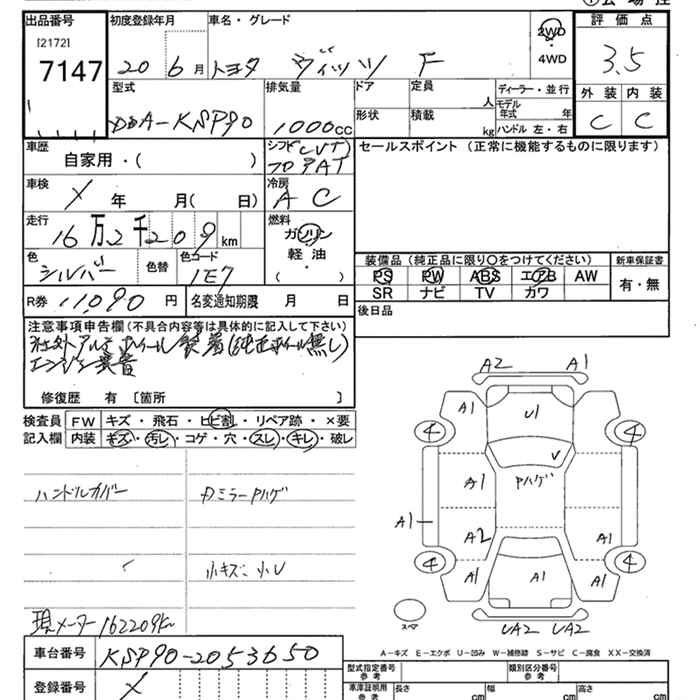 出品番号 初度登録年月 車名・グレード 評価点
[2172] 2WD
7147 20 6月 トヨタ ヴィッツ F 4WD 3.5
型式 排気量 ドア 定員 人 ディーラー・並行 外装 内装
DBA-KSP90 1000cc 形状 積載 kg モデル年式 年 ハンドル 左・右 C C
車歴 シフト CVT セールスポイント(正常に機能するものに限ります)
自家用・( ) フロアAT
車検 冷房
X 年 月( 日) AC
走行 燃料
16万2千209km ガソリン
色 色替 色コード 軽油
シルバー 1E7 ・( )
装備品(純正品に限り○をつけてください) 新車保証書
PS PW ABS エアB AW 有・無
SR ナビ TV カワ
R券 11,090円 名変通知期限 月 日 後日品
注意事項申告欄(不具合内容等は具体的に記入して下さい)
社外アルミホイール装着(純正ホイール無し)
エンジン異音
修復歴 有 〔箇所 〕
検査員 FW キズ・飛石・ヒビ割・リペア跡・×要
記入欄 内装 キズ・汚し・コゲ・穴・スレ・キレ・破レ
ハンドルカバー
ドアミラーPハゲ
小キズ・小U
現メーター162209km
A2 A1
A1 U1
4 4
V
A1 Pハゲ
A1
A2 A1
4 4
A1 A1 A1
スペア
UA2 UA2
A-キズ E-エクボ U-凹み W-補修跡 S-サビ C-腐食 XX-交換済
車台番号 KSP90-2053650
登録番号 X
型式指定番号 参考 類別区分番号 参考
車庫証明用 参考 長さ cm 幅 cm 高さ cm